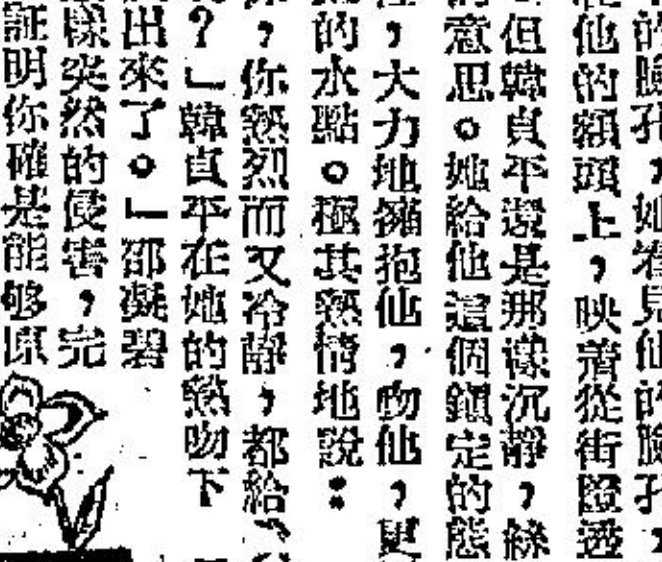 的臉孔,她看見他的臉孔,
他的額頭上,映着從街燈透
但韓貞平還是那樣沉靜,絲
意思。她給他這個鎭定的態
,大力地擁抱他,吻他,更
的水點。極其熱情地說:
,你熱烈而又冷靜,都給
?」韓貞平在她的熱吻下
出來了。」邵凝碧
樣突然的侵害,完
証明你確是能够原